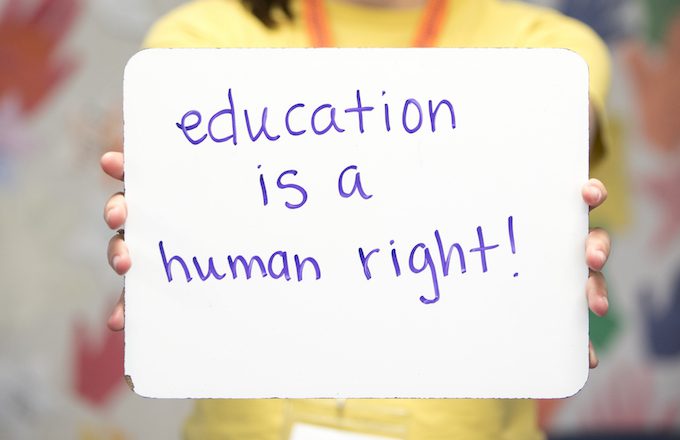 education
is a
human right!